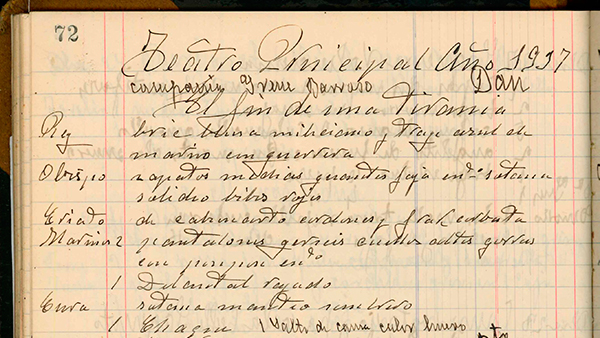 72
Teatro Principal Año 1937
compañia Irene Barroso Dan
El fin de una Tirania
Rey bric blusa miliciano y traje azul de
marino con guerrera
Obispo zapatos medias guantes faja sotana
solideo bibos rojos
Criado de calma cordones y frak corbata
Marinos 2 pantalones gerseis cuellos altos gorras
con pompon
1 Delantal rayado
Cura sotana manteo sombrero
1 Chaque 1 Salto de cama color hueso